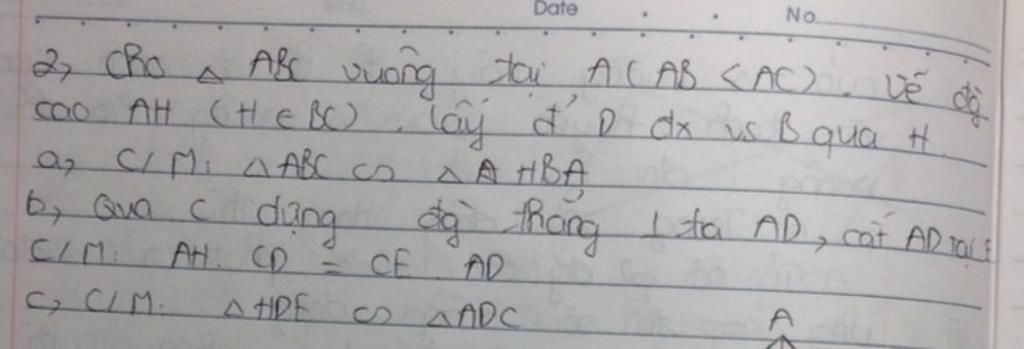 Date No
2, Cho △ ABC vuông tại A (AB < AC). Vẽ đg
cao AH (H ∈ BC). lấy đ' D đx vs B qua H
a, C/M: △ ABC ∽ △ A HBA
b, Qua C dựng đg thẳng ⊥ tại AD, cắt AD tại E
C/M: AH. CD = CE. AD
c, C/M: △ HDE ∽ △ ADC
A